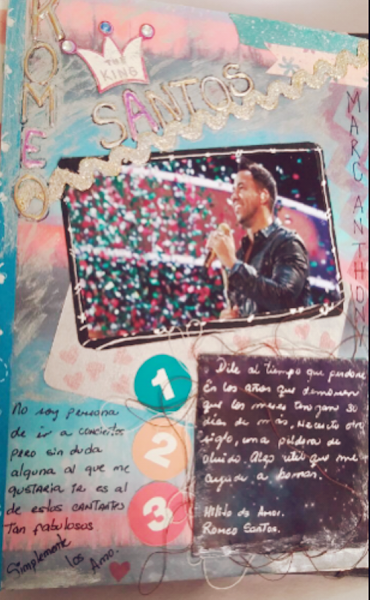 ROMEO
THE
KING
SANTOS
MARC ANTHONY
1
2
3
No soy persona
de ir a conciertos
pero sin duda
alguna al que me
gustaria ir es al
de estos CANTANTES
Tan fabulosos
Simplemente
los Amo.
Dile al tiempo que perdone
En los años que demoren
que los meses tengan 30
dias de más, Necesito otro
siglo, una pildora de
olvido. Algo util que me
ayude a borrar.
Hilito de Amor.
Romeo Santos.